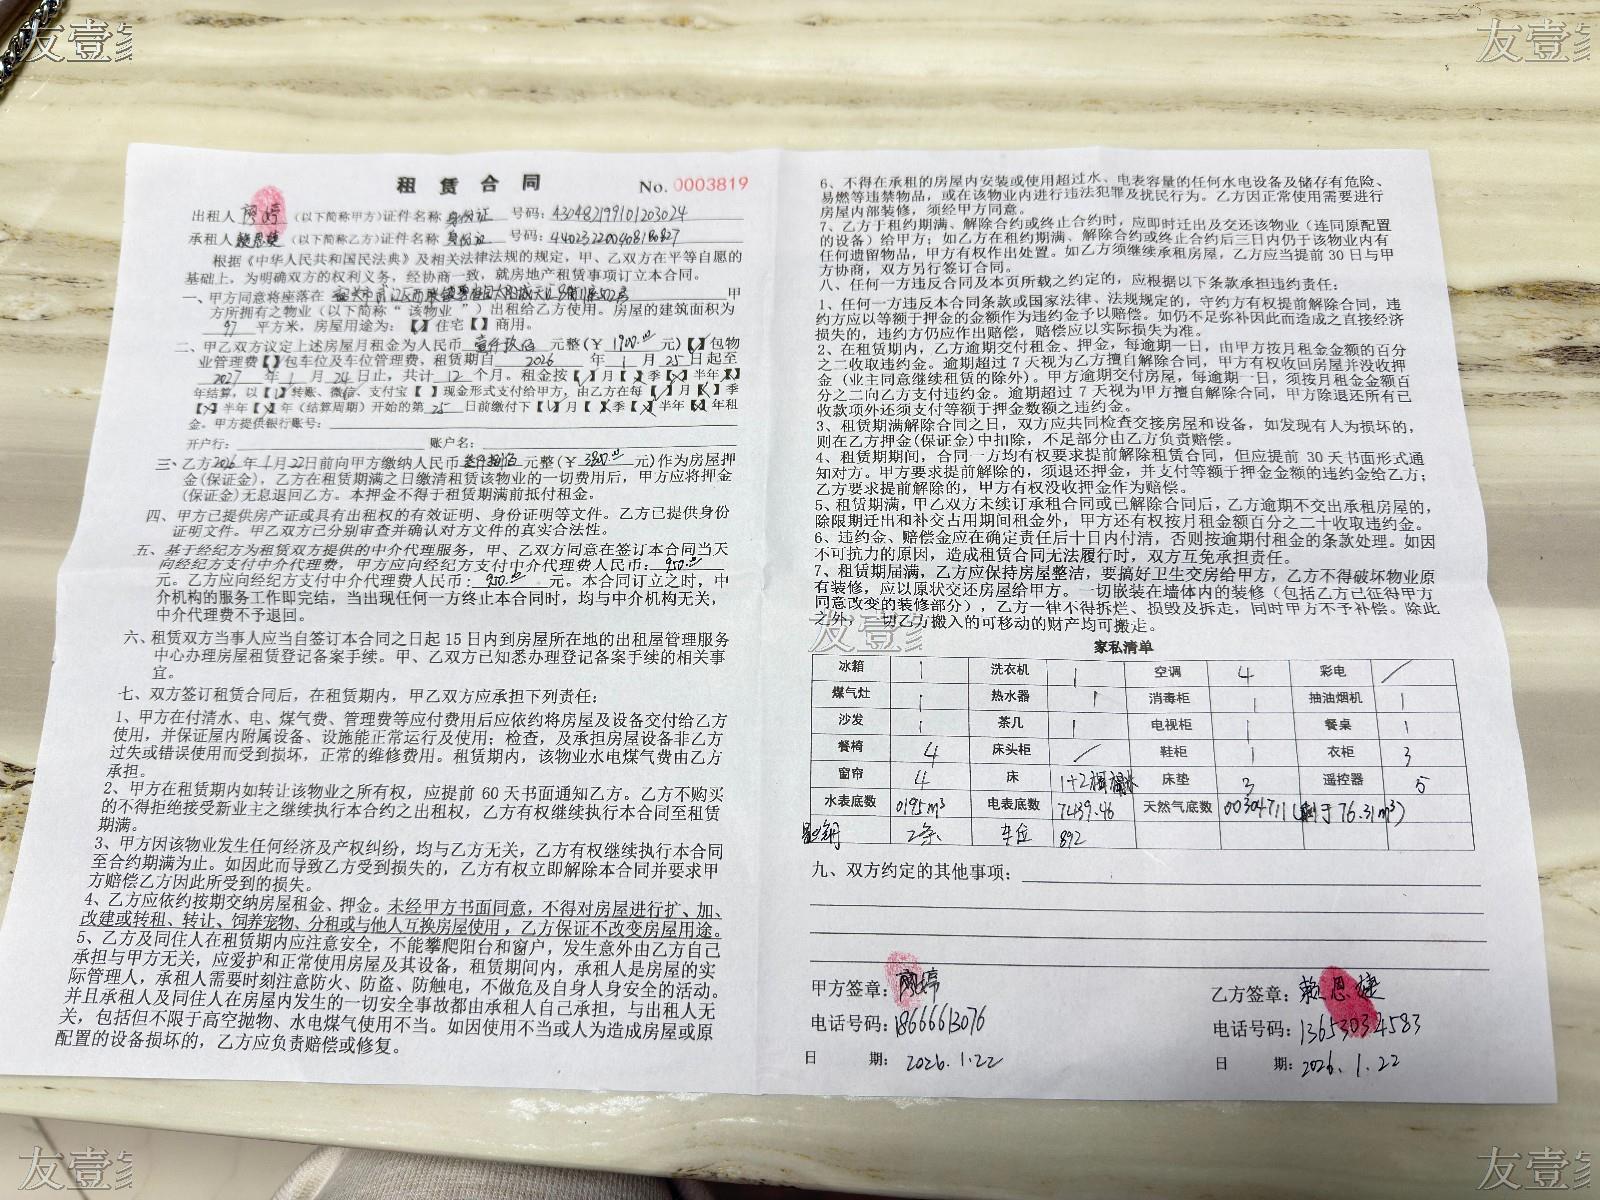 友壹家
友壹家
租赁合同 No. 0003819
出租人 廖婷 (以下简称甲方)证件名称 身份证 号码: 430482199101203024
承租人 赖恩婕 (以下简称乙方)证件名称 身份证 号码: 440232200408180827
根据《中华人民共和国民法典》及相关法律法规的规定，甲、乙双方在平等自愿的
基础上，为明确双方的权利义务，经协商一致，就房地产租赁事项订立本合同。
一、甲方同意将座落在 甲
方所拥有之物业（以下简称“该物业”）出租给乙方使用。房屋的建筑面积为
97 平方米，房屋用途为：【√】住宅【 】商用。
二、甲乙双方议定上述房屋月租金为人民币 壹仟玖佰 元整(￥ 1900.00 元)【 】包物
业管理费【 】包车位及车位管理费，租赁期自 2026 年 1 月 25 日起至
2027 年 1 月 24 日止，共计 12 个月。租金按【√】月【×】季【×】半年【×】
年结算，以【√】转账、微信、支付宝【 】现金形式支付给甲方，由乙方在每【√】月【×】季
【×】半年【×】年（结算周期）开始的第 25 日前缴付下【√】月【×】季【×】半年【×】年租
金。甲方提供银行账号：
开户行： 账户名：
三、乙方2026年1月22日前向甲方缴纳人民币 叁仟捌佰 元整(￥ 3800.00 元)作为房屋押
金(保证金)，乙方在租赁期满之日缴清租赁该物业的一切费用后，甲方应将押金
(保证金)无息退回乙方。本押金不得于租赁期满前抵付租金。
四、甲方已提供房产证或具有出租权的有效证明、身份证明等文件。乙方已提供身份
证明文件。甲乙双方已分别审查并确认对方文件的真实合法性。
五、基于经纪方为租赁双方提供的中介代理服务，甲、乙双方同意在签订本合同当天
向经纪方支付中介代理费，甲方应向经纪方支付中介代理费人民币：950.00
元。乙方应向经纪方支付中介代理费人民币：950.00 元。本合同订立之时，中
介机构的服务工作即完结，当出现任何一方终止本合同时，均与中介机构无关，
中介代理费不予退回。
六、租赁双方当事人应当自签订本合同之日起 15 日内到房屋所在地的出租屋管理服务
中心办理房屋租赁登记备案手续。甲、乙双方已知悉办理登记备案手续的相关事
宜。
七、双方签订租赁合同后，在租赁期内，甲乙双方应承担下列责任：
1、甲方在付清水、电、煤气费、管理费等应付费用后应依约将房屋及设备交付给乙方
使用，并保证屋内附属设备、设施能正常运行及使用；检查，及承担房屋设备非乙方
过失或错误使用而受到损坏，正常的维修费用。租赁期内，该物业水电煤气费由乙方
承担。
2、甲方在租赁期内如转让该物业之所有权，应提前 60 天书面通知乙方。乙方不购买
的不得拒绝接受新业主之继续执行本合约之出租权，乙方有权继续执行本合同至租赁
期满。
3、甲方因该物业发生任何经济及产权纠纷，均与乙方无关，乙方有权继续执行本合同
至合约期满为止。如因此而导致乙方受到损失的，乙方有权立即解除本合同并要求甲
方赔偿乙方因此所受到的损失。
4、乙方应依约按期交纳房屋租金、押金。未经甲方书面同意，不得对房屋进行扩、加、
改建或转租、转让、饲养宠物、分租或与他人互换房屋使用，乙方保证不改变房屋用途。
5、乙方及同住人在租赁期内应注意安全，不能攀爬阳台和窗户，发生意外由乙方自己
承担与甲方无关，应爱护和正常使用房屋及其设备，租赁期间内，承租人是房屋的实
际管理人，承租人需要时刻注意防火、防盗、防触电，不做危及自身人身安全的活动。
并且承租人及同住人在房屋内发生的一切安全事故都由承租人自己承担，与出租人无
关，包括但不限于高空抛物、水电煤气使用不当。如因使用不当或人为造成房屋或原
配置的设备损坏的，乙方应负责赔偿或修复。
6、不得在承租的房屋内安装或使用超过水、电表容量的任何水电设备及储存有危险、
易燃等违禁物品，或在该物业内进行违法犯罪及扰民行为。乙方因正常使用需要进行
房屋内部装修，须经甲方同意。
7、乙方于租约期满、解除合约或终止合约时，应即时迁出及交还该物业（连同原配置
的设备）给甲方；如乙方在租约期满、解除合约或终止合约后三日内仍于该物业内有
任何遗留物品，甲方有权作出处置。如乙方须继续承租房屋，乙方应当提前 30 日与甲
方协商，双方另行签订合同。
八、任何一方违反合同及本页所载之约定的，应根据以下条款承担违约责任：
1、任何一方违反本合同条款或国家法律、法规规定的，守约方有权提前解除合同，违
约方应以等额于押金的金额作为违约金予以赔偿。如仍不足弥补因此而造成之直接经济
损失的，违约方仍应作出赔偿，赔偿应以实际损失为准。
2、在租赁期内，乙方逾期交付租金、押金，每逾期一日，由甲方按月租金金额的百分
之二收取违约金。逾期超过 7 天视为乙方擅自解除合同，甲方有权收回房屋并没收押
金（业主同意继续租赁的除外）。甲方逾期交付房屋，每逾期一日，须按月租金金额百
分之二向乙方支付违约金。逾期超过 7 天视为甲方擅自解除合同，甲方除退还所有已
收款项外还须支付等额于押金数额之违约金。
3、租赁期满解除合同之日，双方应共同检查交接房屋和设备，如发现有人为损坏的，
则在乙方押金(保证金)中扣除，不足部分由乙方负责赔偿。
4、租赁期期间，合同一方均有权要求提前解除租赁合同，但应提前 30 天书面形式通
知对方。甲方要求提前解除的，须退还押金，并支付等额于押金金额的违约金给乙方；
乙方要求提前解除的，甲方有权没收押金作为赔偿。
5、租赁期满，甲甲乙双方未续订承租合同或已解除合同后，乙方逾期不交出承租房屋的，
除限期迁出和补交占用期间租金外，甲方还有权按月租金额百分之二十收取违约金。
6、违约金、赔偿金应在确定责任后十日内付清，否则按逾期付租金的条款处理。如因
不可抗力的原因，造成租赁合同无法履行时，双方互免承担责任。
7、租赁期届满，乙方应保持房屋整洁，要搞好卫生交房给甲方，乙方不得破坏物业原
有装修，应以原状交还房屋给甲方。一切嵌装在墙体内的装修（包括乙方已征得甲方
同意改变的装修部分），乙方一律不得拆烂、损毁及拆走，同时甲方不予补偿。除此
之外，一切乙方搬入的可移动的财产均可搬走。
友壹家
家私清单
冰箱 1 洗衣机 1 空调 4 彩电 /
煤气灶 1 热水器 1 消毒柜 1 抽油烟机 1
沙发 1 茶几 1 电视柜 1 餐桌 1
餐椅 4 床头柜 / 鞋柜 1 衣柜 3
窗帘 4 床 1+2 床垫 3 遥控器 5
水表底数 0195m³ 电表底数 7439.46 天然气底数 00304711 (剩于76.31m³)
2条 车位 892
九、双方约定的其他事项：
甲方签章：廖婷 乙方签章：赖恩婕
电话号码：18666613076 电话号码：13653034583
日 期：2026.1.22 日 期：2026.1.22
友壹家
友壹家